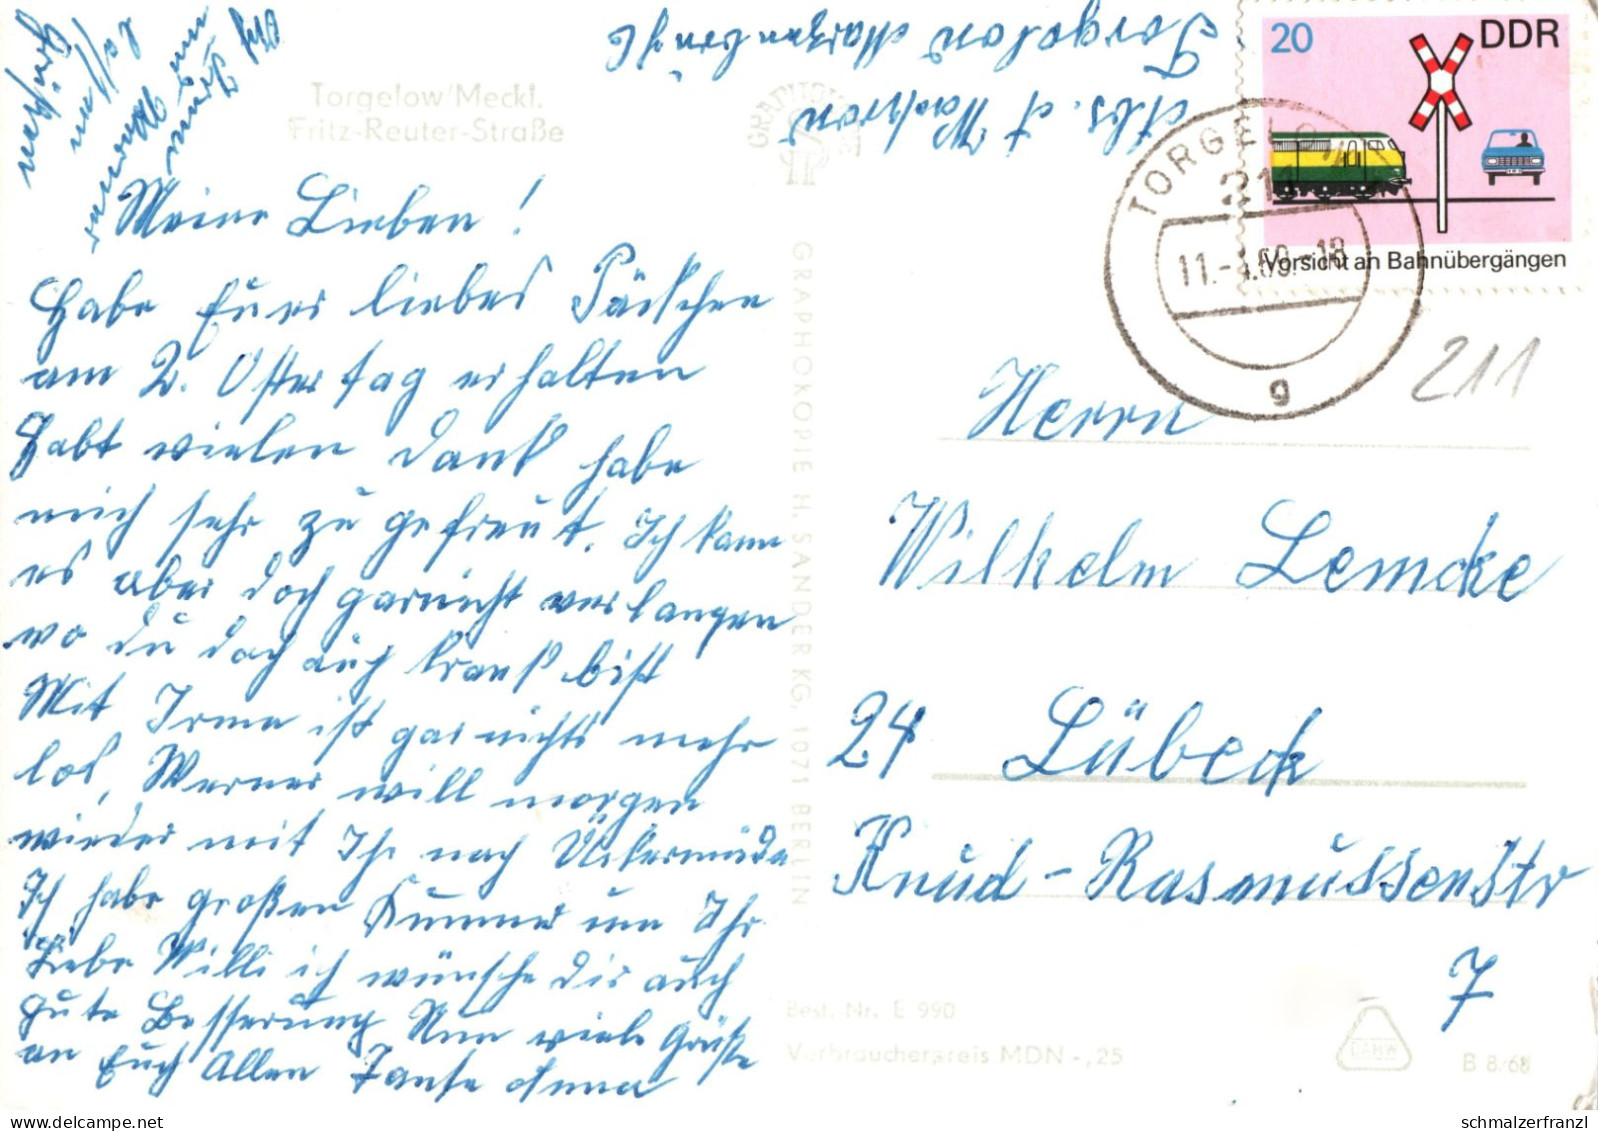 Torgelow/Meckl.
Fritz-Reuter-Straße
Meine Lieben!
Habe Euer liebes Päckchen
am 2. Ostertag erhalten
Habt vielen Dank habe
mich sehr zu gefreut. Ich kann
es aber doch garnicht verlangen
wo du doch auch krank bist
Mit Irma ist gar nichts mehr
los, Werner will morgen
wieder mit Ihr nach Ückermünde
Ich habe großen Kummer um Ihr
Liebe Willi ich wünsche dir auch
gute Besserung Nun viele Grüße
an Euch Allen Tante Anna
Auch
Irma
und
Werner
lassen
Grüßen
GRAPHOKOPIE H. SANDER KG, 1071 BERLIN
Abs. A
Torgelow
20 DDR
Vorsicht an Bahnübergängen
TORGELOW
11.-4.69-18
g
211
Herrn
Wilhelm Lemcke
24 Lübeck
Knud-Rasmussenstr
7
Best. Nr. E 990
Verbraucherpreis MDN -,25
B 8/68
schmalzerfranzl